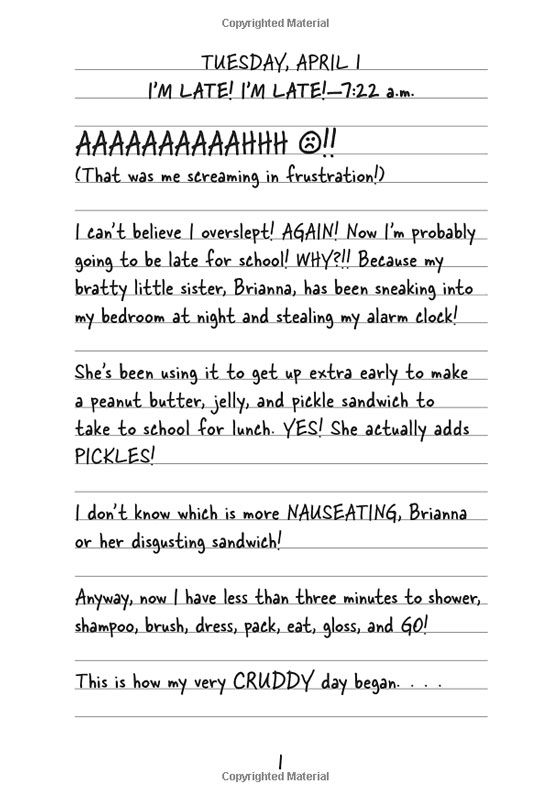 Copyrighted Material
TUESDAY, APRIL 1
I'M LATE! I'M LATE!—7:22 a.m.
AAAAAAAAAAAHHH ☹!!
(That was me screaming in frustration!)
I can't believe I overslept! AGAIN! Now I'm probably
going to be late for school! WHY?!! Because my
bratty little sister, Brianna, has been sneaking into
my bedroom at night and stealing my alarm clock!
She's been using it to get up extra early to make
a peanut butter, jelly, and pickle sandwich to
take to school for lunch. YES! She actually adds
PICKLES!
I don't know which is more NAUSEATING, Brianna
or her disgusting sandwich!
Anyway, now I have less than three minutes to shower,
shampoo, brush, dress, pack, eat, gloss, and GO!
This is how my very CRUDDY day began. . . .
1
Copyrighted Material